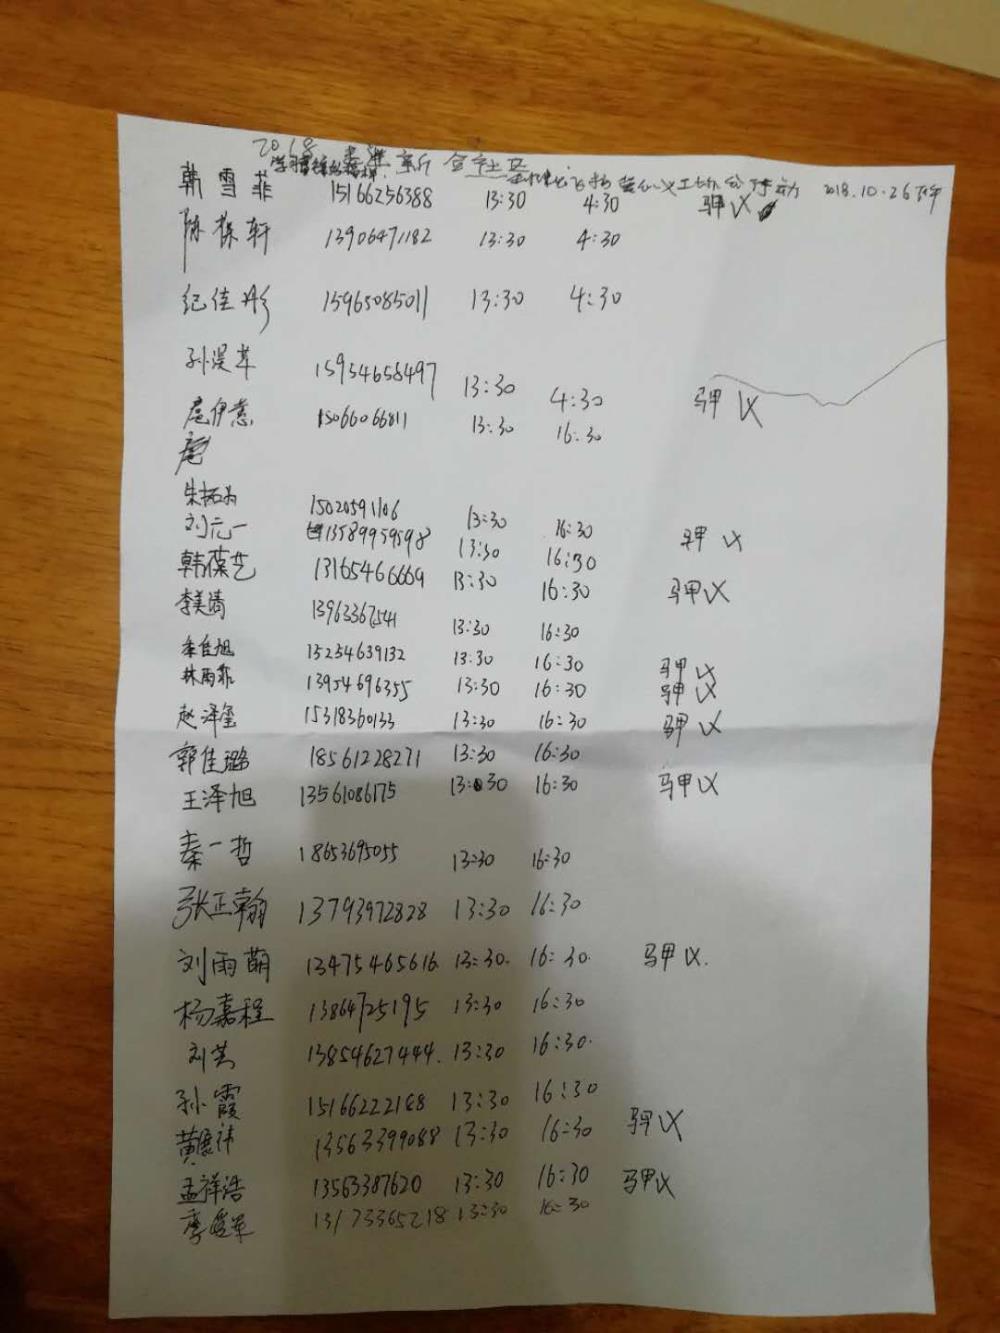 2018 走进新
韩雪菲 15166256388 13:30 4:30 马甲
2018.10.26
陈 轩 13906471182 13:30 4:30
纪佳彤 15965085011 13:30 4:30
孙 苹 15954658497 13:30 4:30 马甲
伊意 15066066811 13:30 16:30
朱拓为 15020591106 13:30 16:30
刘元一 13589959598 13:30 16:30 马甲
韩葆艺 13165466669 13:30 16:30 马甲
李美 13:30 16:30
佳旭 15254639132 13:30 16:30 马甲
林雨菲 13954696355 13:30 16:30 马甲
赵泽玺 15318360133 13:30 16:30 马甲
郭佳璐 18561228271 13:30 16:30
王泽旭 13561086175 13:30 16:30 马甲
秦一哲 18653695055 13:30 16:30
张正翰 13793972828 13:30 16:30
刘雨萌 13475465616 13:30. 16:30. 马甲
杨嘉程 13864725195 13:30 16:30
刘 13854627444. 13:30 16:30.
孙霞 13:30 16:30
黄 祎 13563399088 13:30 16:30 马甲
孟祥浩 13563387620 13:30 16:30 马甲
13173365218 13:30 16:30